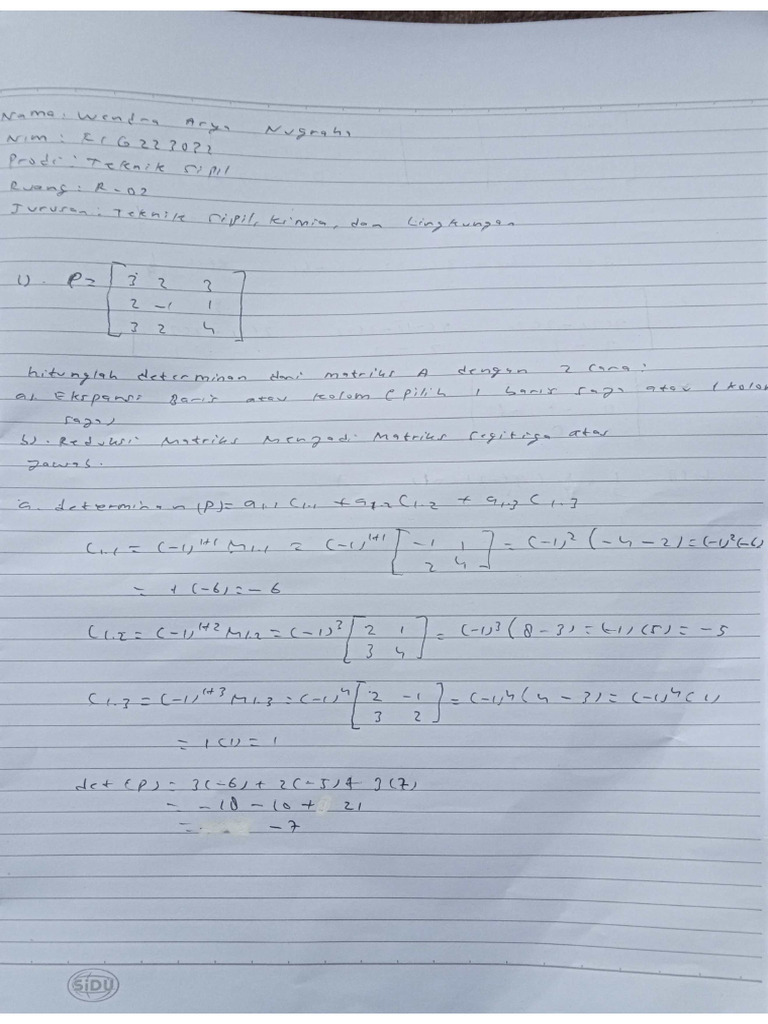 Nama: Wendra Arya Nugraha
Nim : K1G223022
Prodi : Teknik Sipil
Ruang : R-02
Jurusan : Teknik Sipil, Kimia, dan Lingkungan
1). P= [ 3 2 3
2 -1 1
3 2 4 ]
hitunglah determinan dari matriks A dengan 2 cara:
a). Ekspansi Baris atau kolom (pilih 1 baris saja atau 1 kolom
saja)
b). Reduksi Matriks Menjadi Matriks segitiga atas
Jawab.
a. determinan (P) = a1.1 C1.1 + a1.2 C1.2 + a1.3 C1.3
C1.1 = (-1)^1+1 M1.1 = (-1)^1+1 [ -1 1 / 2 4 ] = (-1)^2 (-4 - 2) = (-1)^2 (-6)
= + (-6) = -6
C1.2 = (-1)^1+2 M1.2 = (-1)^3 [ 2 1 / 3 4 ] = (-1)^3 (8 - 3) = (-1) (5) = -5
C1.3 = (-1)^1+3 M1.3 = (-1)^4 [ 2 -1 / 3 2 ] = (-1)^4 (4 - 3) = (-1)^4 (1)
= 1 (1) = 1
det (P) = 3(-6) + 2(-5) + 3(7)
= -18 - 10 + 21
= -7
SiDU